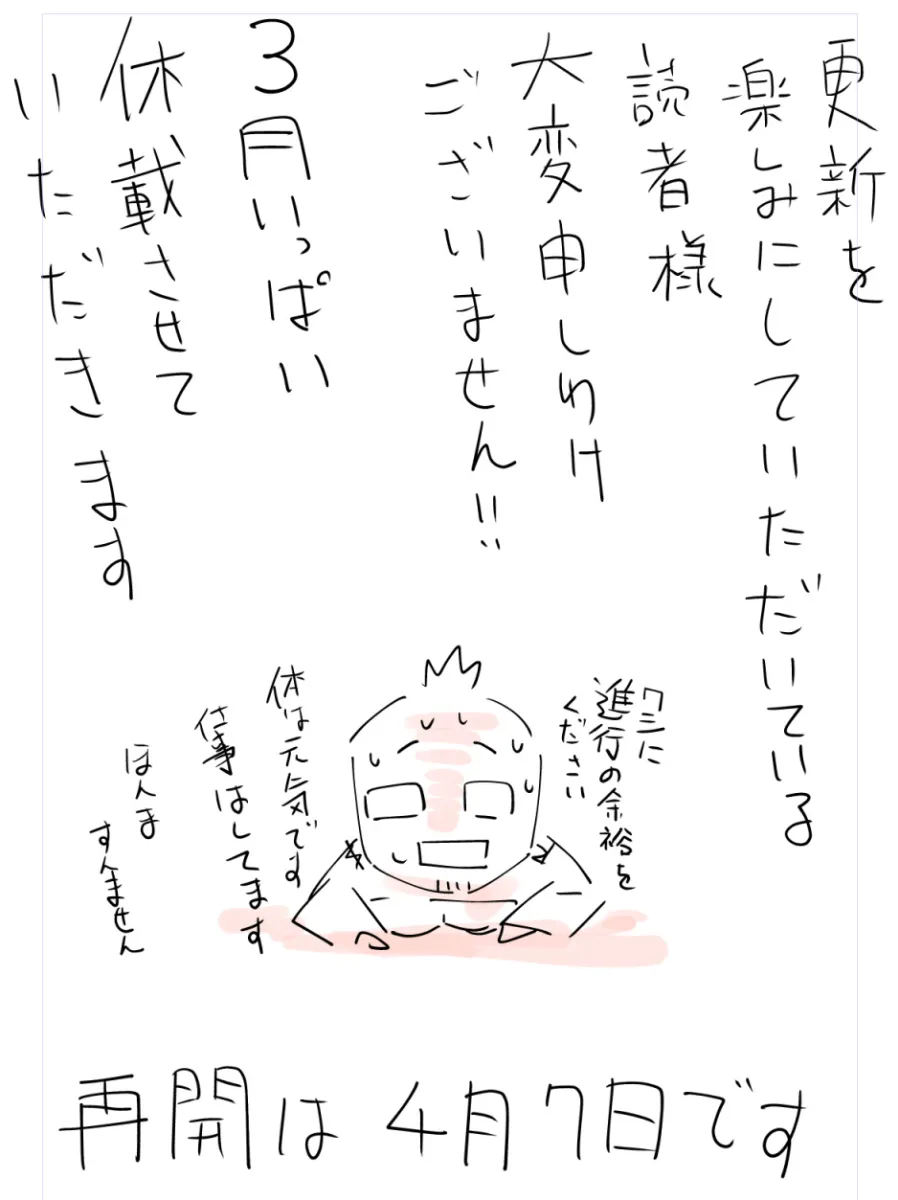 更新を
楽しみにしていただいている
読者様
大変申しわけ
ございません!!
3月いっぱい
休載させて
いただきます
ワシに
進行の余裕を
ください
体は元気です
仕事はしてます
ほんま
すんません
再開は4月7日です